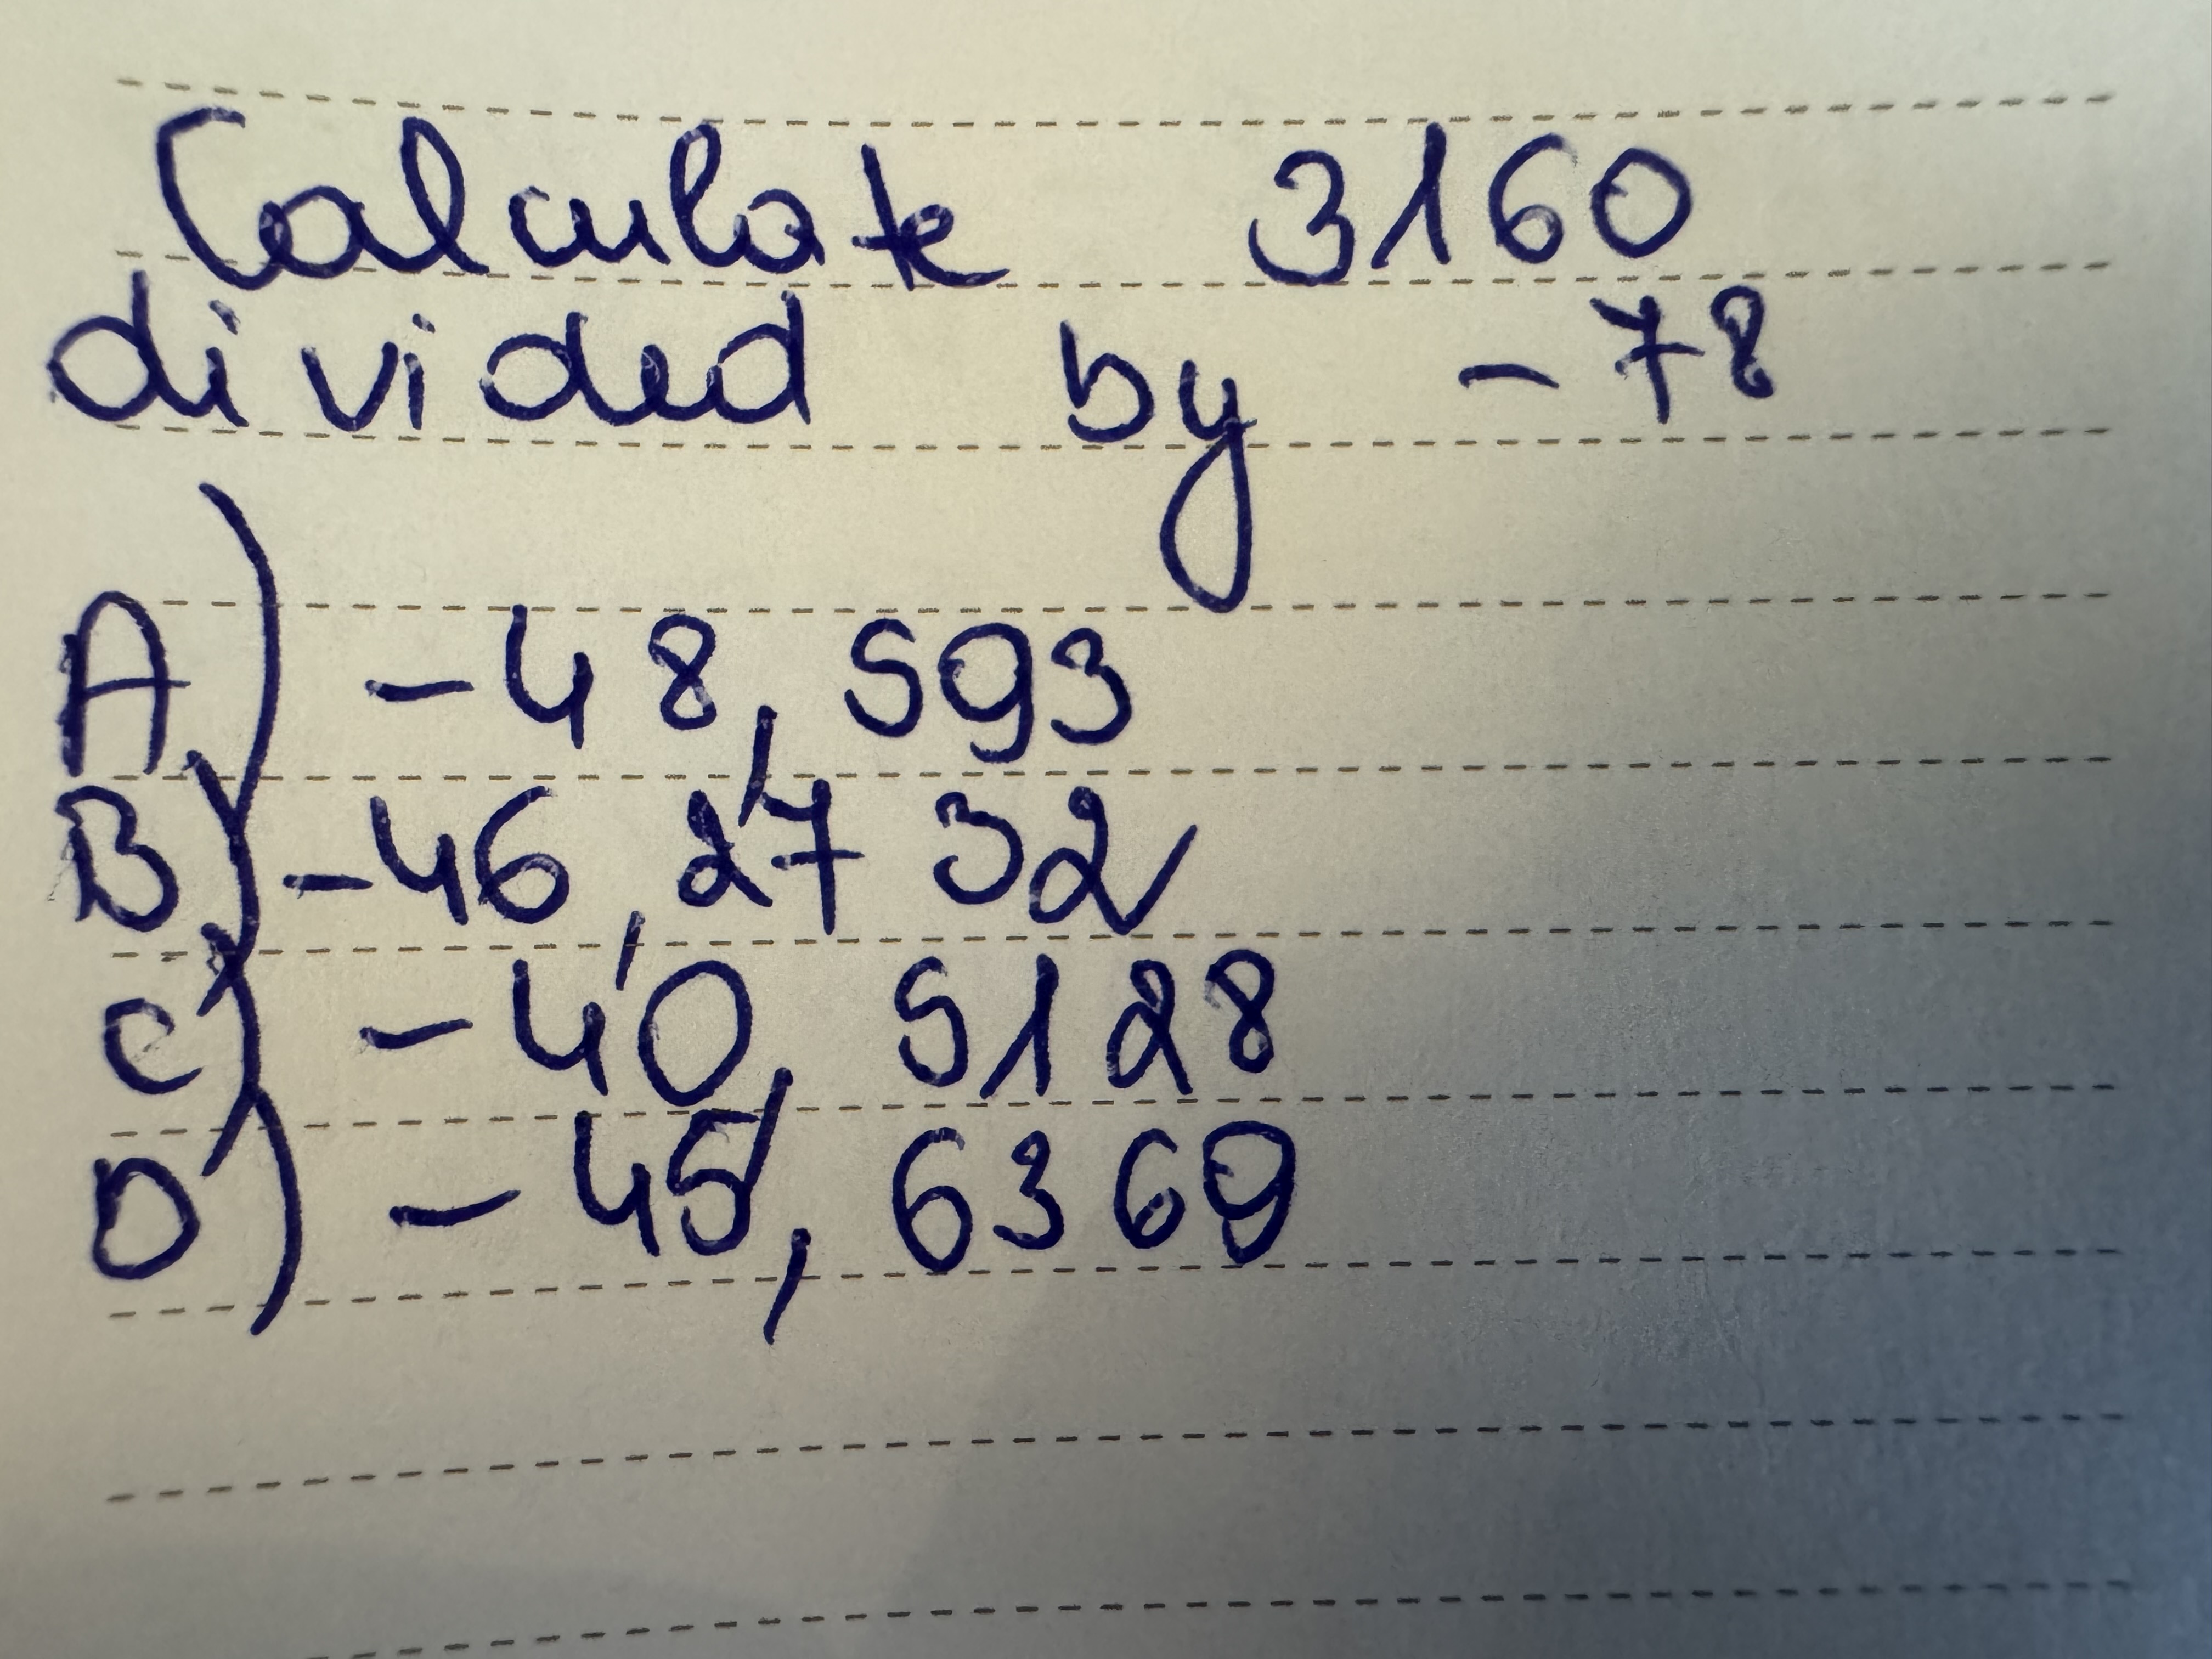 Calculate 3160
divided by -78
A) -48, 593
B) -46, 2732
C) -40, 5128
D) -45, 6369